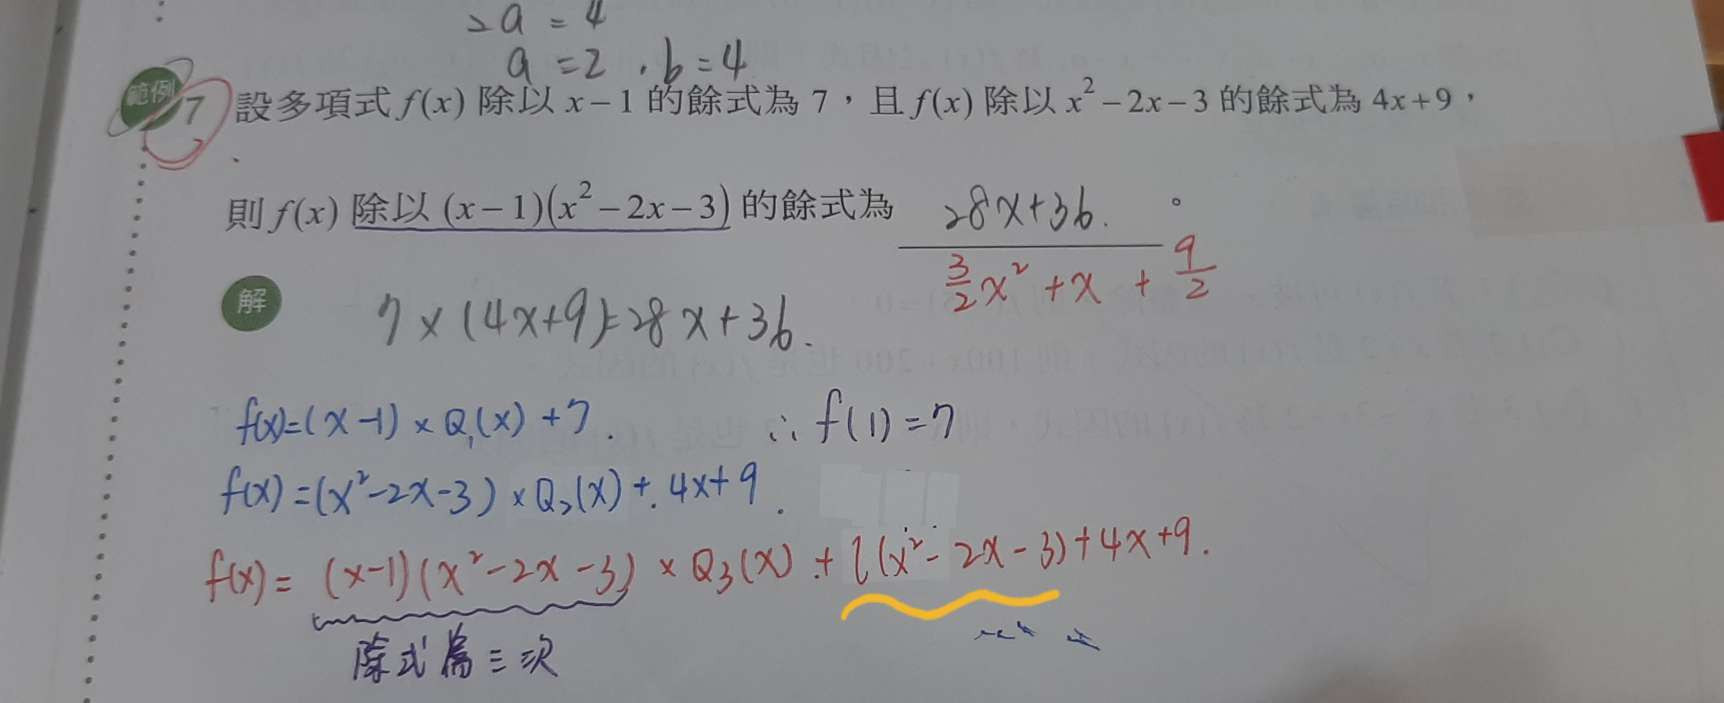 2a = 4
a = 2 , b = 4
範例 7 設多項式 f(x) 除以 x－1 的餘式為 7，且 f(x) 除以 x²－2x－3 的餘式為 4x＋9，
則 f(x) 除以 (x－1)(x²－2x－3) 的餘式為 28x+36. 。
3/2x² + x + 9/2
解 7 × (4x+9) = 28x+36.
f(x)=(x-1) × Q₁(x) + 7. ∴ f(1) = 7
f(x) = (x²-2x-3) × Q₂(x) + 4x+9.
f(x) = (x-1)(x²-2x-3) × Q₃(x) + l(x²-2x-3)+4x+9.
除式為三次